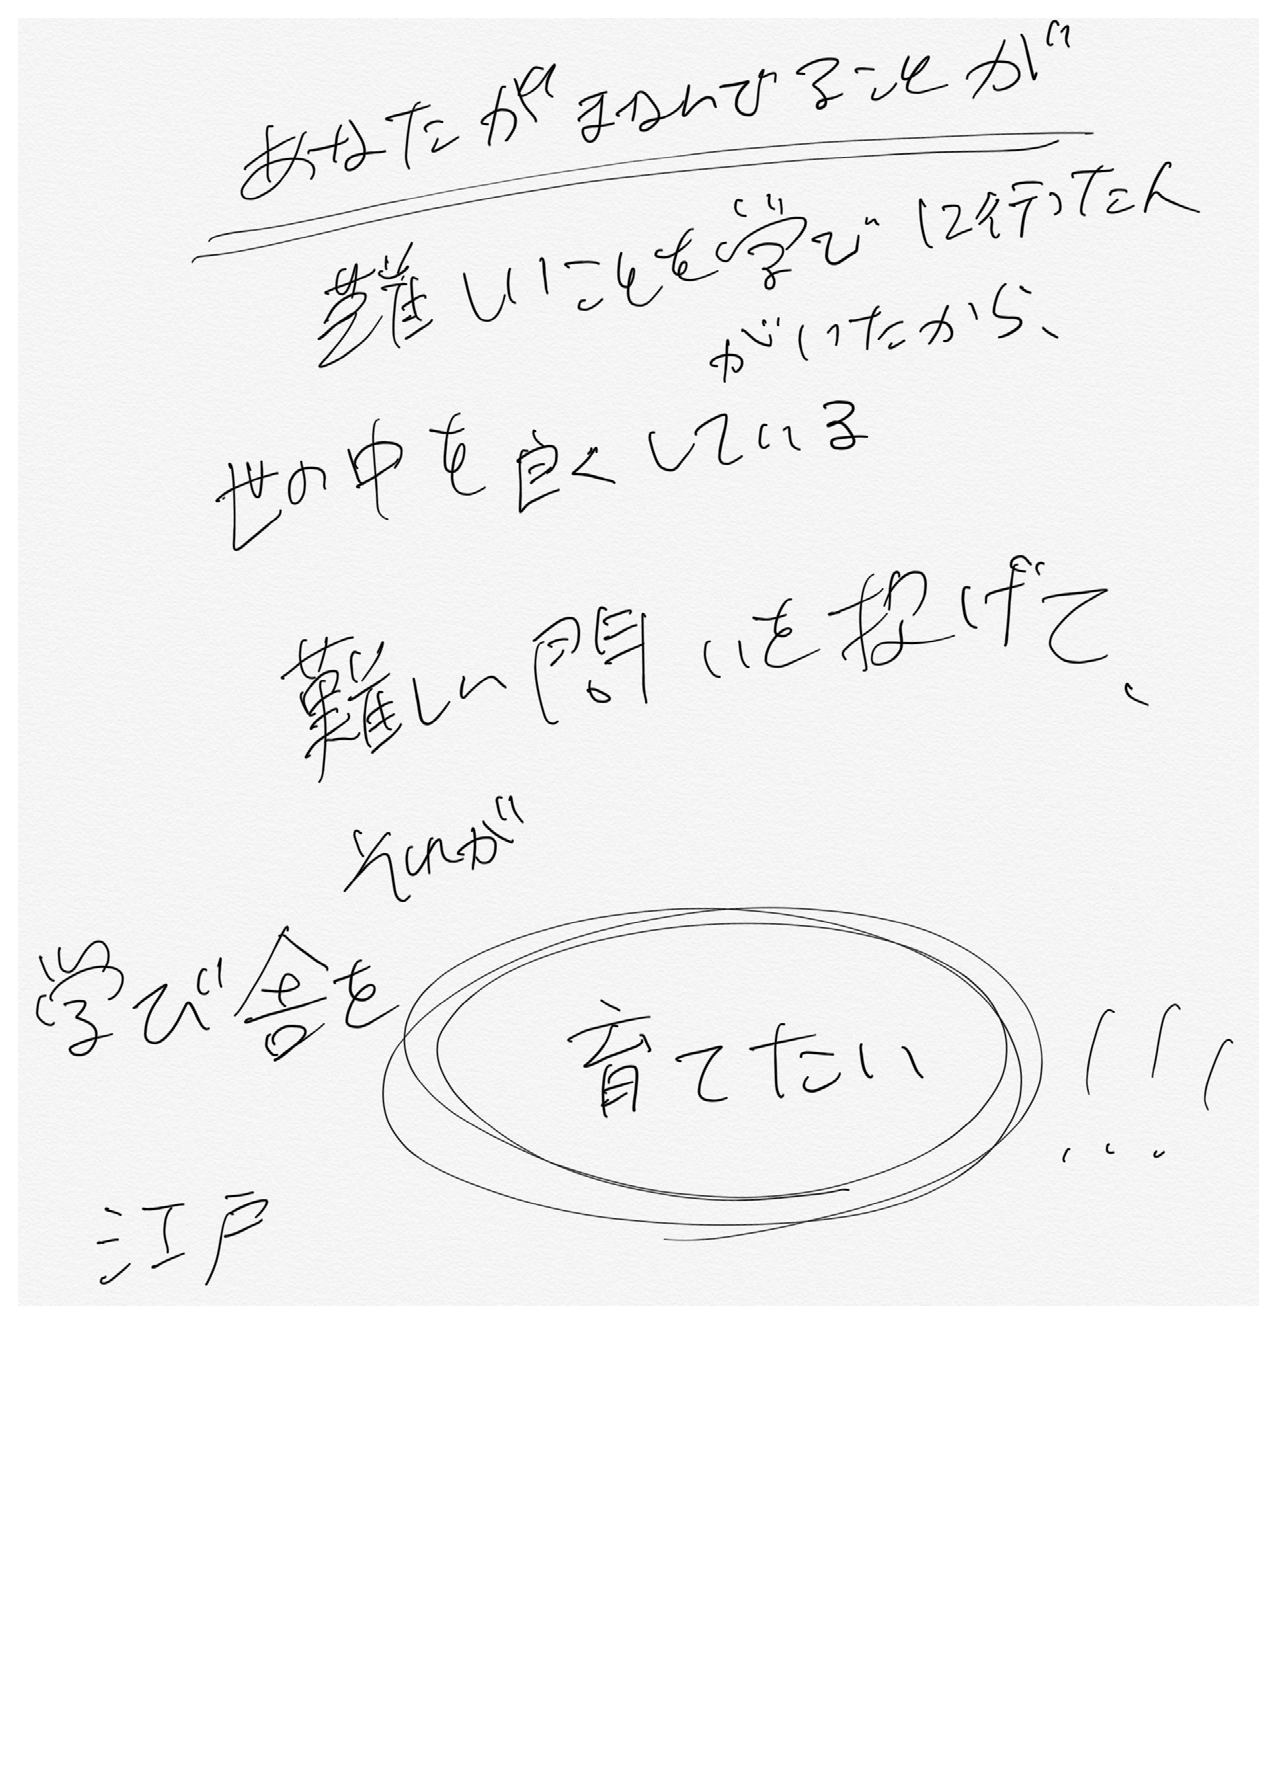 あなたがまなんでることが
難しいことを学びに行った人
がいたから、
世の中を良くしている
難しい問いを投げて、
それが
学び舎を
育てたい
!!!
江戸